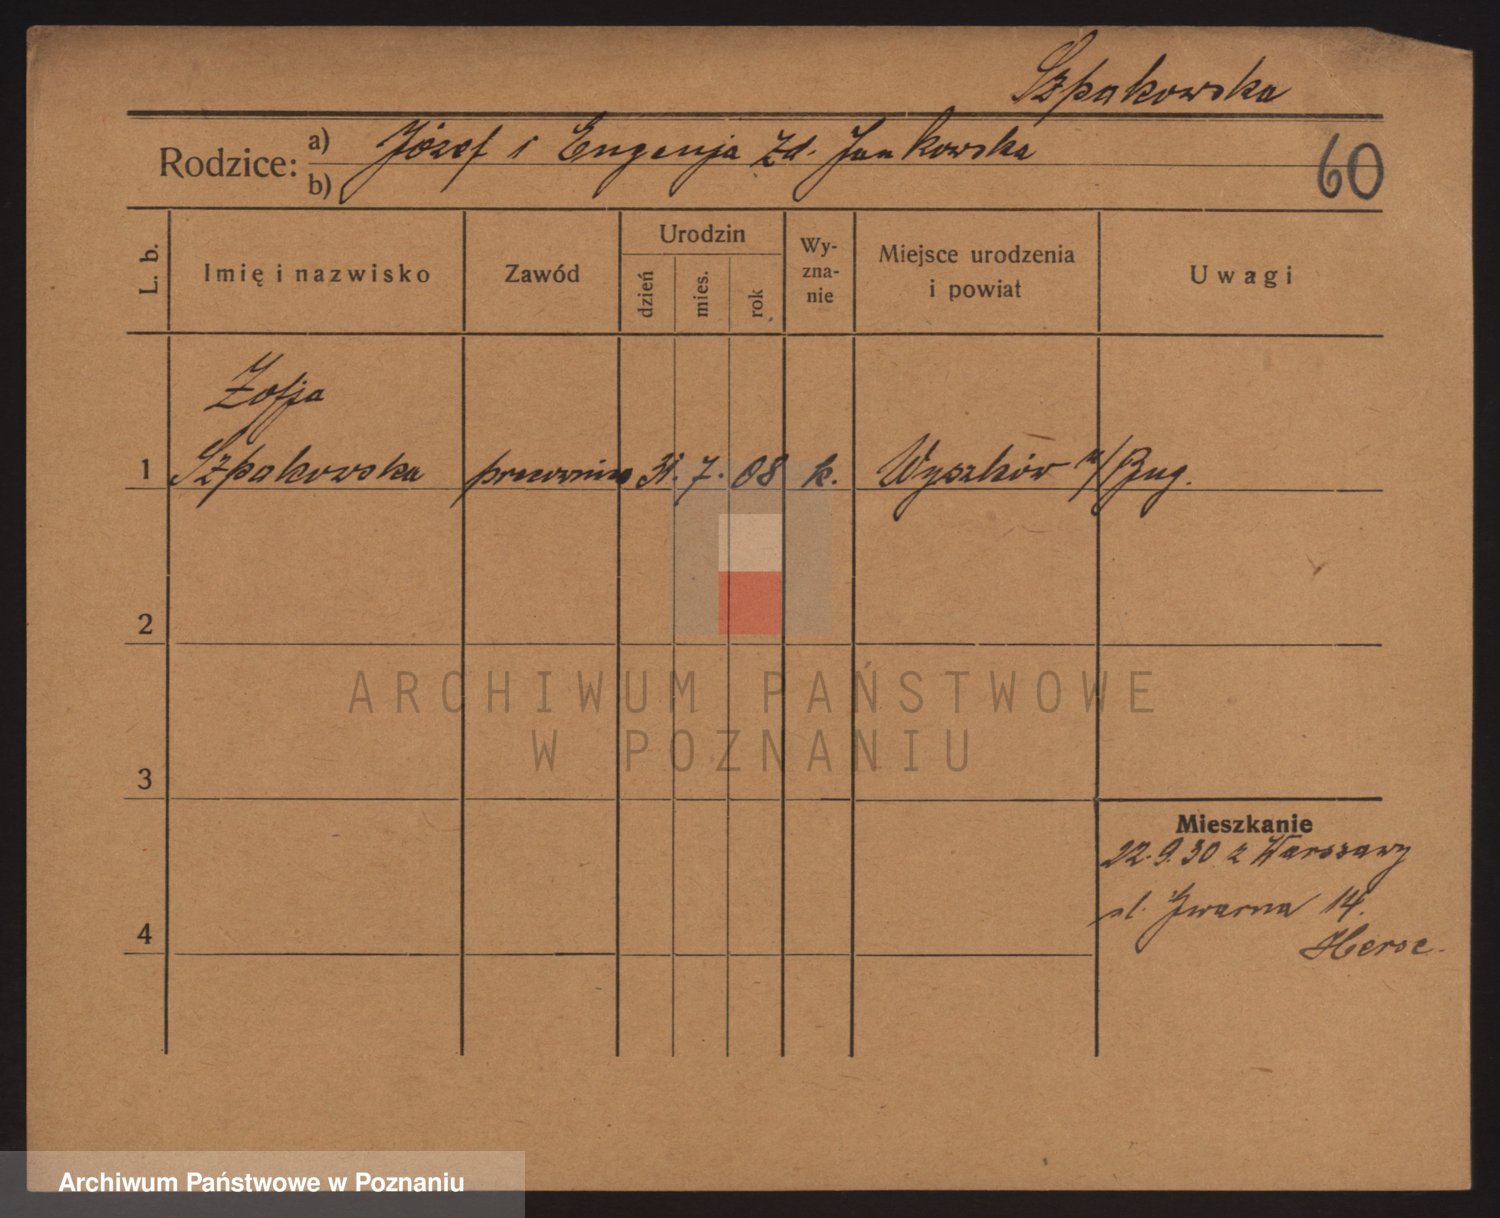 Szpakowska
Rodzice: a) Józef i Eugenja zd. Jankowska
b)
60
L. b.
Imię i nazwisko
Zawód
Urodzin
dzień
mies.
rok
Wy-
zna-
nie
Miejsce urodzenia
i powiat
Uwagi
Zofja
1 Szpakowska 31. 7. 08 k. Wyszków n/Bug.
2
ARCHIWUM PAŃSTWOWE
W POZNANIU
3
Mieszkanie
22.9.30 z Warszawy
ul. 14.
4
Archiwum Państwowe w Poznaniu